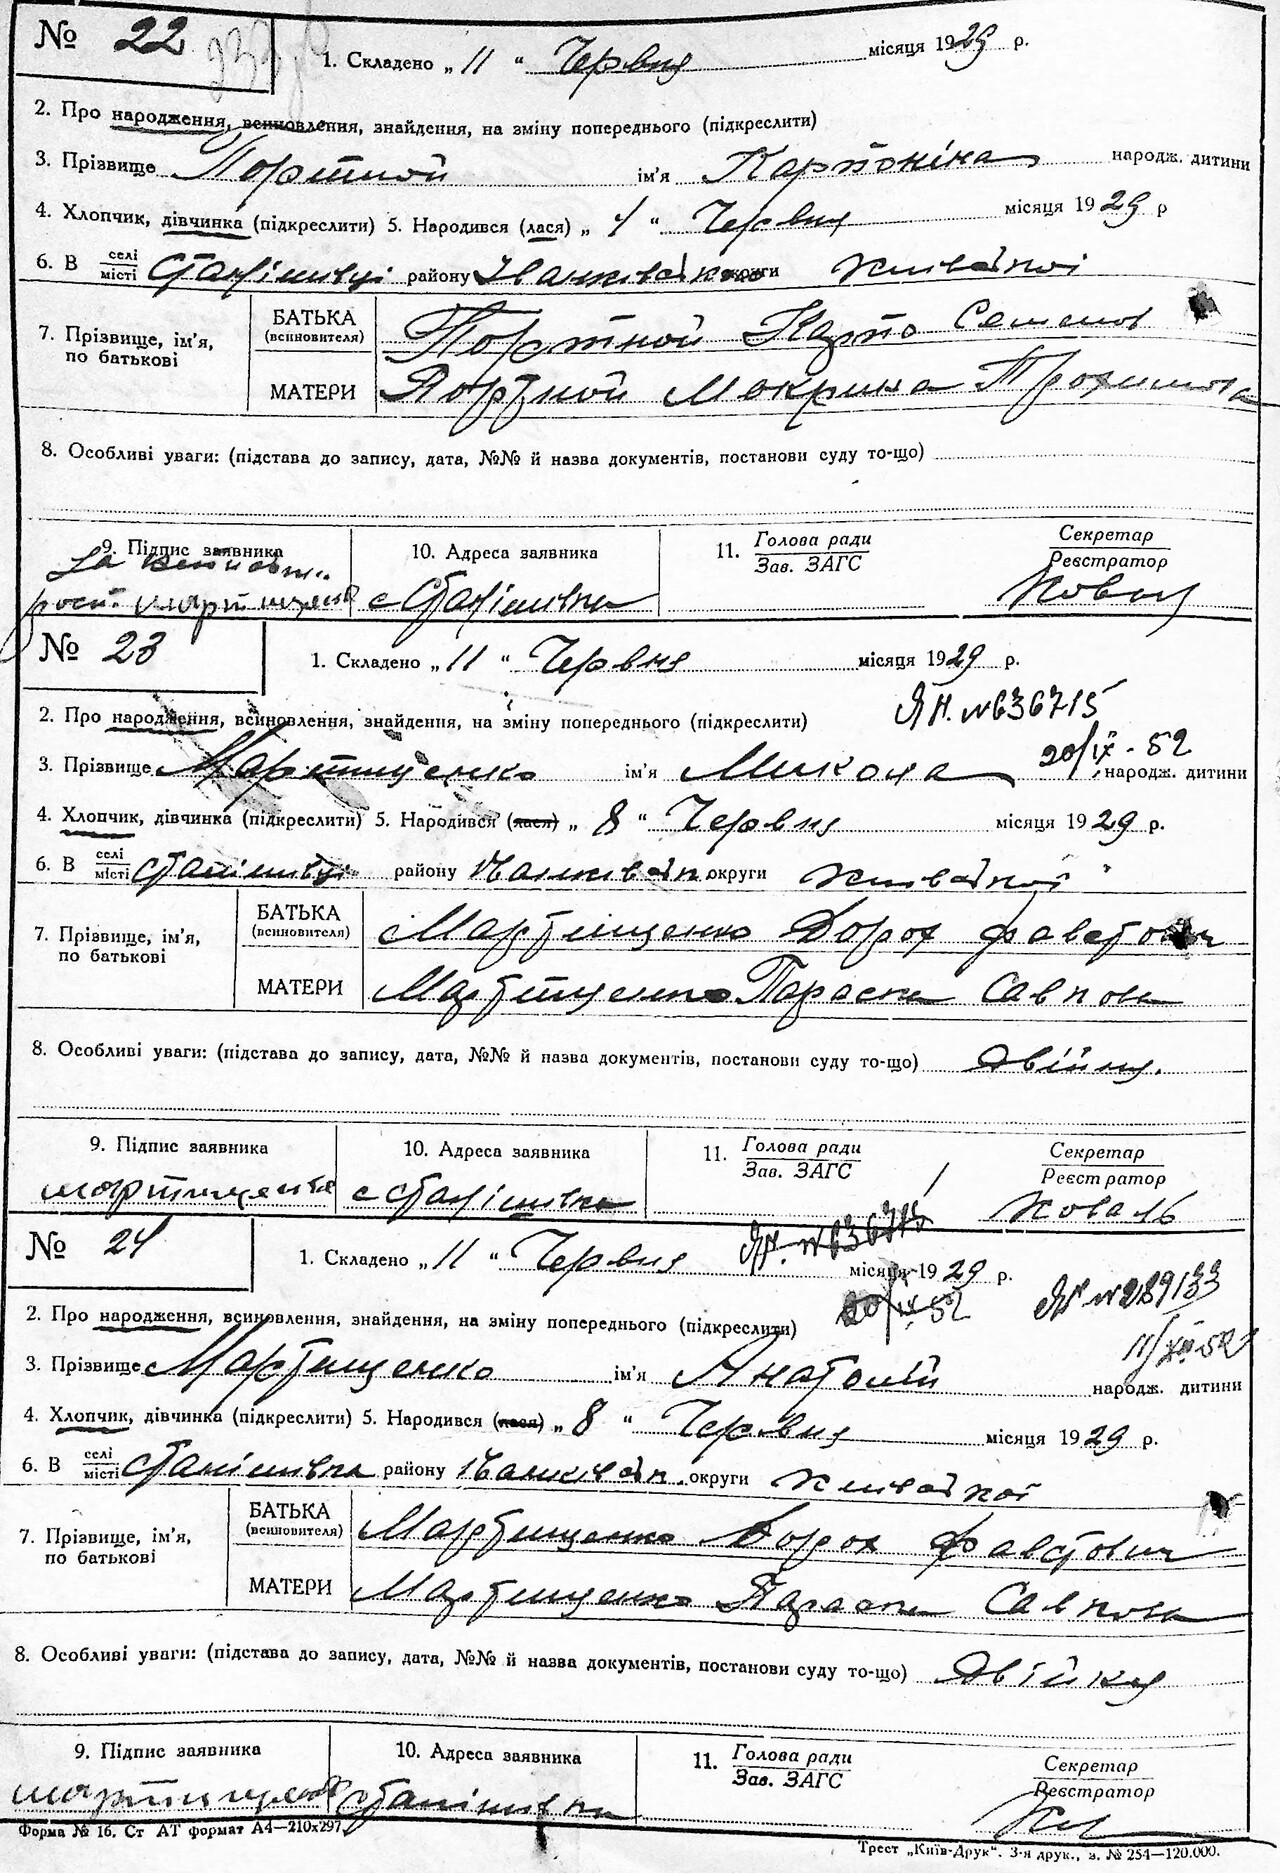 № 22
1. Складено „ 11 “ Червня місяця 1929 р.
2. Про народження, всиновлення, знайдення, на зміну попереднього (підкреслити)
3. Прізвище Портной ім'я народж. дитини
4. Хлопчик, дівчинка (підкреслити) 5. Народився (лася) „ “ Червня місяця 1929 р
6. В селі місті Станішивці району Іванківськ округи Київської
7. Прізвище, ім'я, по батькові
БАТЬКА (всиновителя) Портной Карпо Семенов
МАТЕРИ Портной Мокрина Трохимовна
8. Особливі уваги: (підстава до запису, дата, №№ й назва документів, постанови суду то-що)
9. Підпис заявника
10. Адреса заявника
11. Голова ради
Зав. ЗАГС
Секретар
Реєстратор
За
рост. Мартищенко
с Станішивка
Коваль
№ 23
1. Складено „ 11 “ Червня місяця 1929 р.
2. Про народження, всиновлення, знайдення, на зміну попереднього (підкреслити)
ЯН. №636715
20/IX - 52
3. Прізвище Мартищенко ім'я Микола народж. дитини
4. Хлопчик, дівчинка (підкреслити) 5. Народився (лася) „ 8 “ Червня місяця 1929 р.
6. В селі місті Станішивці району Іванківськ. округи Київської
7. Прізвище, ім'я, по батькові
БАТЬКА (всиновителя) Мартищенко Дорох Фавстович
МАТЕРИ Мартищенко Параска Савковна
8. Особливі уваги: (підстава до запису, дата, №№ й назва документів, постанови суду то-що) Двійня.
9. Підпис заявника
10. Адреса заявника
11. Голова ради
Зав. ЗАГС
Секретар
Реєстратор
Мартищенко
с Станішивка
Коваль
№ 24
ЯН. №636715
1. Складено „ 11 “ Червня місяця 1929 р.
20/IX 52
№289133
11/XII 52
2. Про народження, всиновлення, знайдення, на зміну попереднього (підкреслити)
3. Прізвище Мартищенко ім'я Анатолій народж. дитини
4. Хлопчик, дівчинка (підкреслити) 5. Народився (лася) „ 8 “ Червня місяця 1929 р.
6. В селі місті Станішивка району Іванківськ. округи Київської
7. Прізвище, ім'я, по батькові
БАТЬКА (всиновителя) Мартищенко Дорох Фавстович
МАТЕРИ Мартищенко Параска Савковна
8. Особливі уваги: (підстава до запису, дата, №№ й назва документів, постанови суду то-що) Двійня
9. Підпис заявника
10. Адреса заявника
11. Голова ради
Зав. ЗАГС
Секретар
Реєстратор
Мартищенко
Станішивка
Форма № 16. Ст АТ формат А4—210х297.
Трест „Київ-Друк“. 3-я друк., з. № 254—120.000.